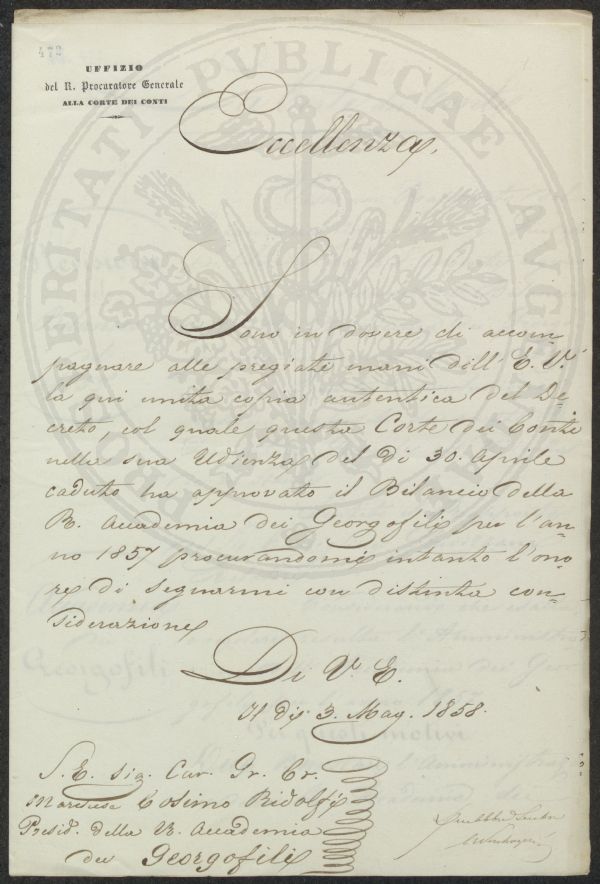 472
UFFIZIO
del R. Procuratore Generale
ALLA CORTE DEI CONTI
Eccellenza,
Sono in dovere di accom-
pagnare alle pregiate mani dell' E. V.
la qui unita copia autentica del De-
creto, col quale questa Corte dei Conti
nella sua Udienza del dì 30. Aprile
caduto ha approvato il Bilancio della
R. Accademia dei Georgofili per l'an-
no 1857 procurandomi intanto l'ono-
re di segnarmi con distinta con-
siderazione
Di V. E.
Il dì 3. Mag. 1858.
S. E. Sig. Cav. Gr. Cr.
Marchese Cosimo Ridolfi
Presid. della R. Accademia
dei Georgofili
PROSPERITATI PUBLICAE AUGENDAE